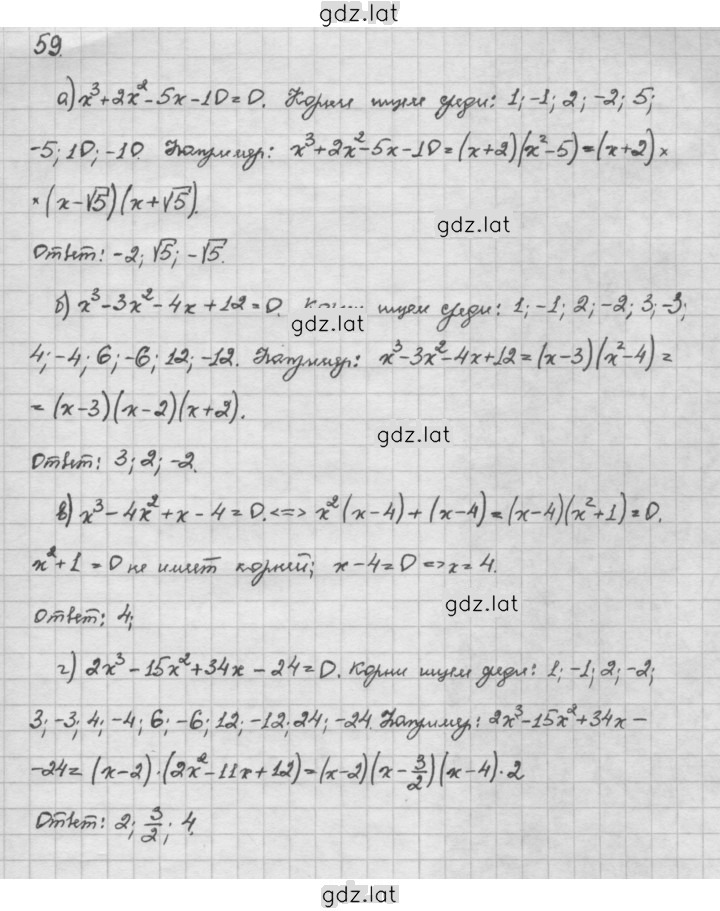 gdz.lat
59.
а) x³+2x²-5x-10=0. Корни ищем среди: 1; -1; 2; -2; 5;
-5; 10; -10. Например: x³+2x²-5x-10=(x+2)(x²-5)=(x+2)×
×(x-√5)(x+√5).
gdz.lat
Ответ: -2; √5; -√5.
б) x³-3x²-4x+12=0. Корни ищем среди: 1; -1; 2; -2; 3; -3;
gdz.lat
4; -4; 6; -6; 12; -12. Например: x³-3x²-4x+12=(x-3)(x²-4)=
=(x-3)(x-2)(x+2).
gdz.lat
Ответ: 3; 2; -2.
в) x³-4x²+x-4=0. <=> x²(x-4)+(x-4)=(x-4)(x²+1)=0.
x²+1=0 не имеет корней; x-4=0 => x=4.
gdz.lat
Ответ: 4;
г) 2x³-15x²+34x-24=0. Корни ищем среди: 1; -1; 2; -2;
3; -3; 4; -4; 6; -6; 12; -12; 24; -24. Например: 2x³-15x²+34x-
-24=(x-2)·(2x²-11x+12)=(x-2)(x-3/2)(x-4)·2
Ответ: 2; 3/2; 4.
gdz.lat